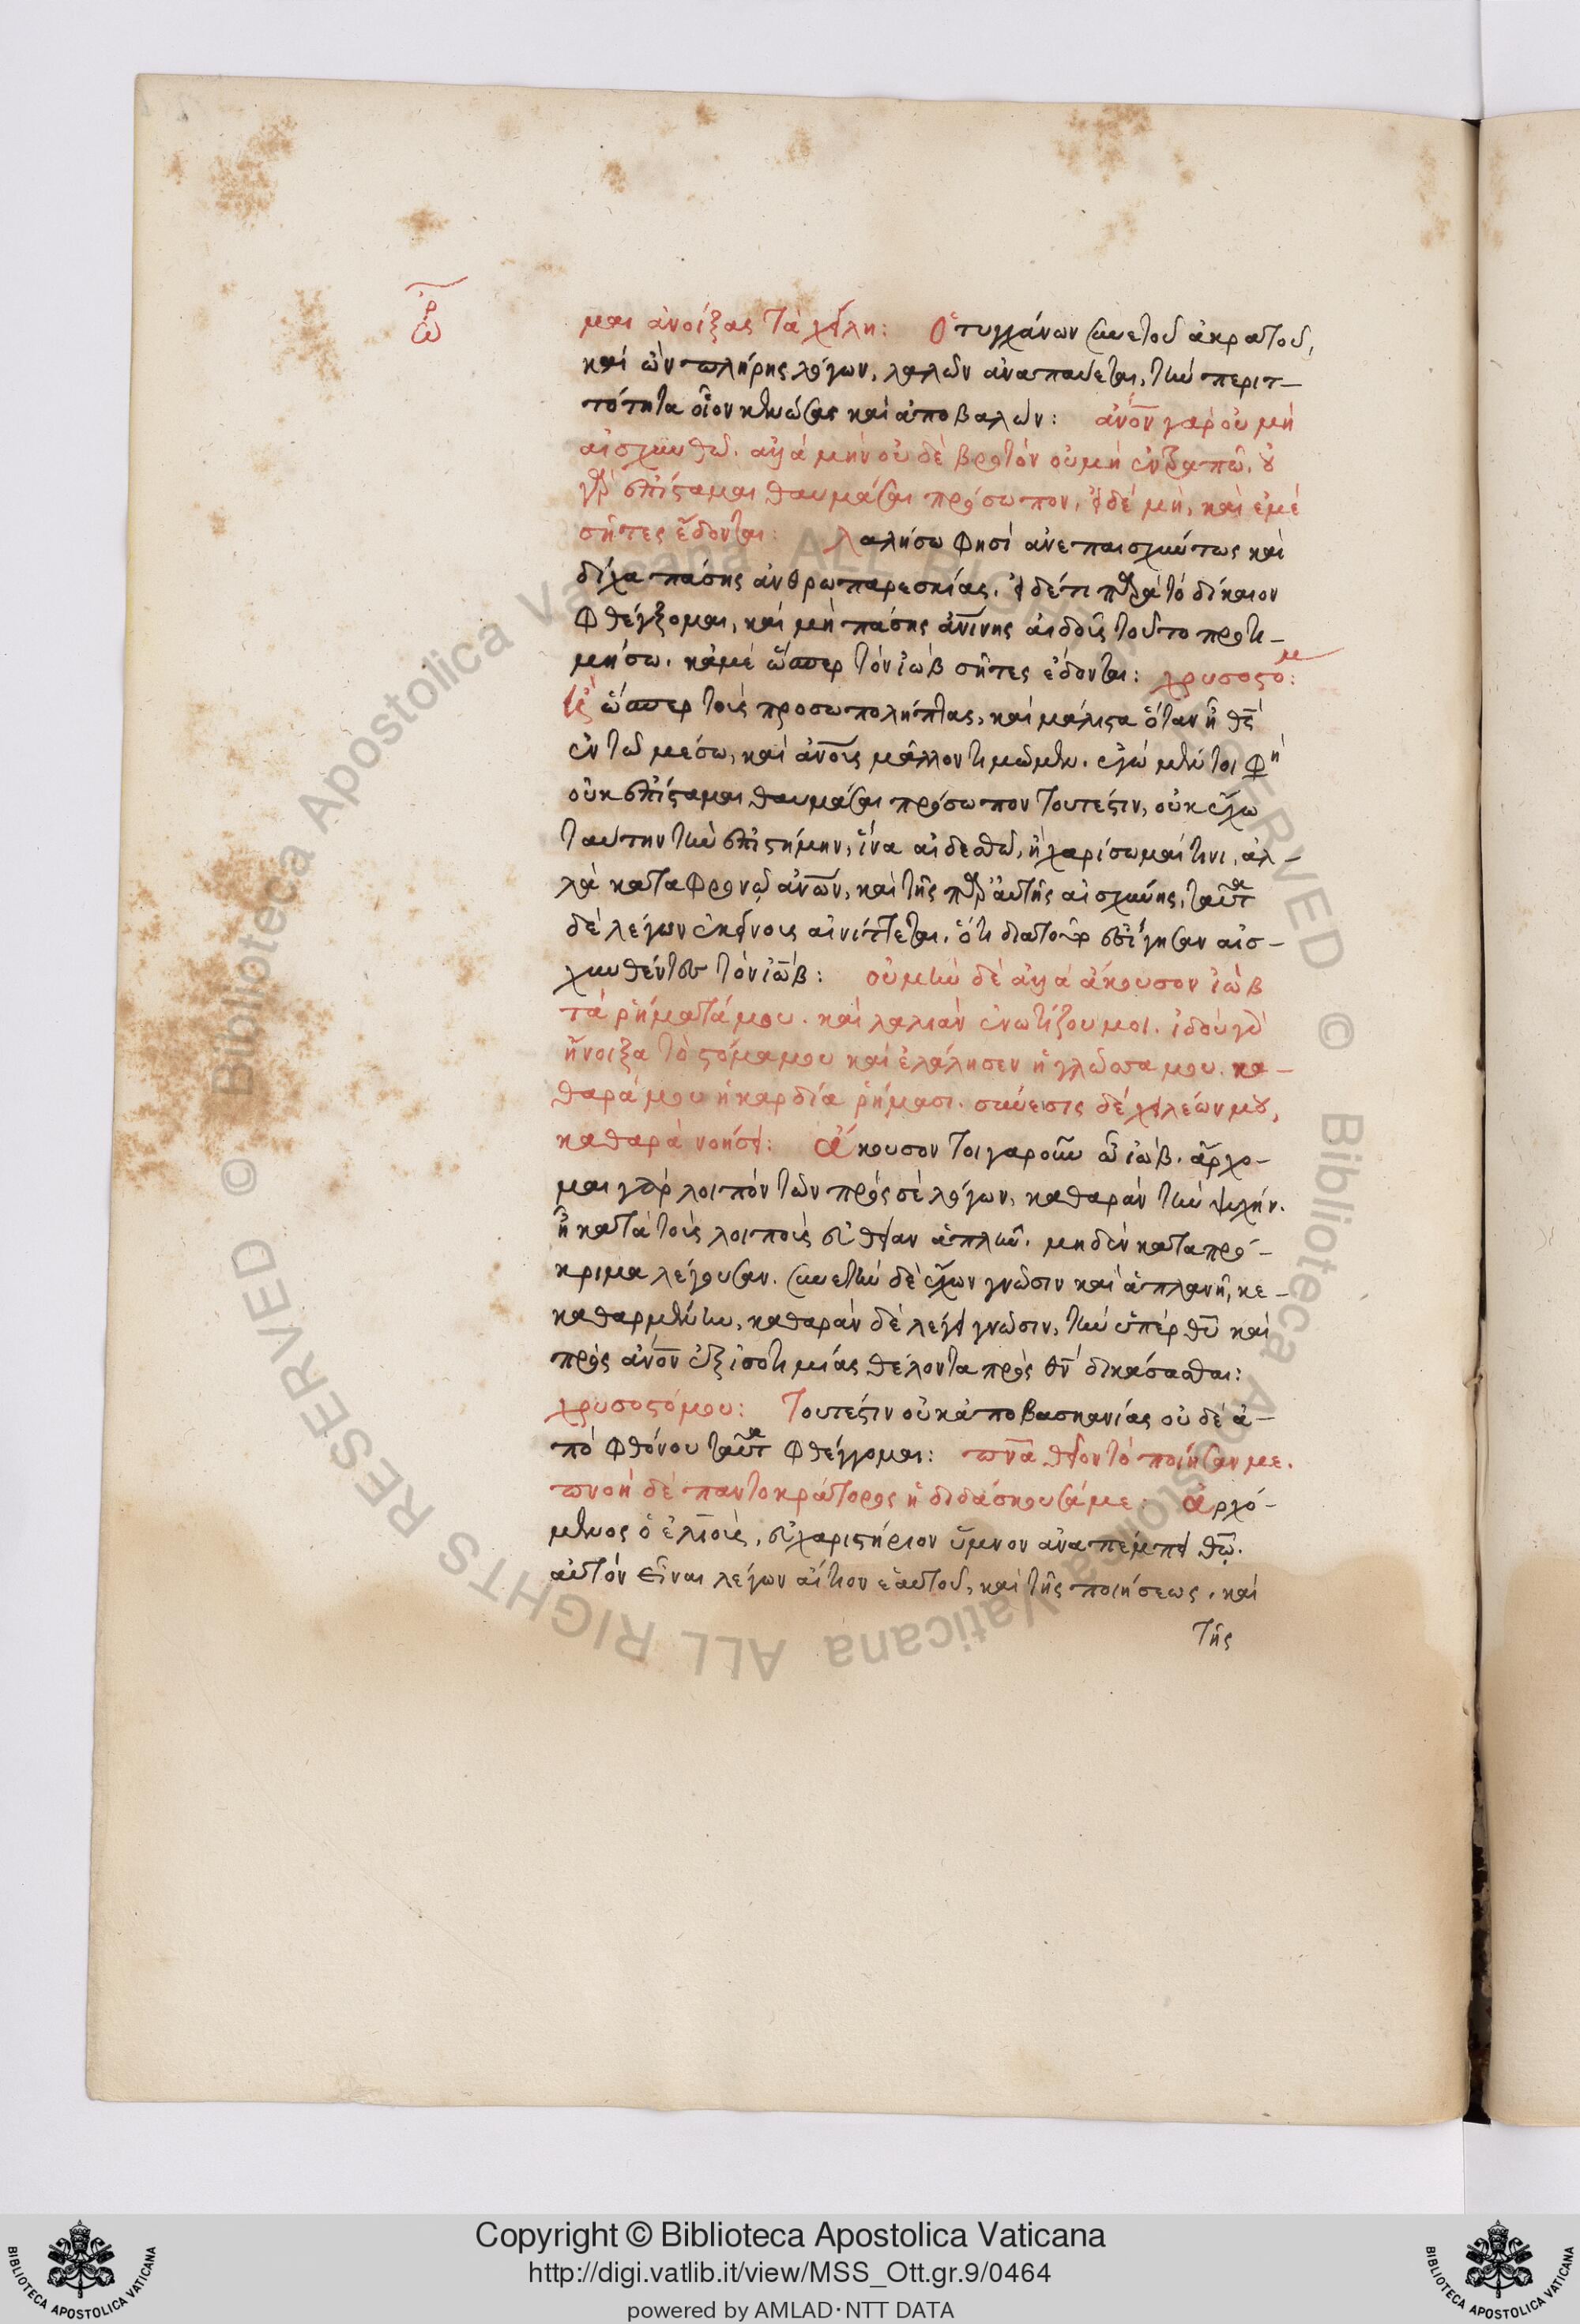 ὡρ
μαι ἀνοίξας τὰ χείλη: Ὁ τυγχάνων συνετοῦ ἀκρατοῦ,
καὶ ὢν πλήρης λόγων, λαλῶν ἀναπαύεται, τὴν περιτ–
τότητα οἷον κενώσας καὶ ἀποβαλών: ἀνον γὰρ οὐ μὴ
αἰσχυνθῶ. ἀλλὰ μὴν οὐδὲ βροτὸν οὐ μὴ ἐντραπῶ. οὐ
γὰρ ἐπίσταμαι θαυμάσαι πρόσωπον, εἰ δὲ μὴ, καὶ ἐμὲ
σῆτες ἔδονται: Λαλήσω φησὶ ἀνεπαισχύντως καὶ
δίχα πάσης ἀνθρωπαρεσκίας. εἰ δέ τι παρὰ τὸ δίκαιον
φθέγξομαι, καὶ μὴ πάσης ἀνίνης αἰδοῦς τοῦτο προτι–
μήσω. κἀμὲ ὥσπερ τὸν ἰὼβ σῆτες ἔδονται: χρυσοστομ:
ὥσπερ τοὺς προσωπολήπτας, καὶ μάλιστα ὅταν ᾖ θς
ἐν τῷ μέσω, καὶ ἀνους μᾶλλον τιμῶμεν. ἐγὼ μέντοι φη
οὐκ ἐπίσταμαι θαυμάσαι πρόσωπον τουτέστιν, οὐκ ἔχω
ταύτην τὴν ἐπιστήμην, ἵνα αἰδεσθῶ, ἢ χαρίσωμαί τινι, ἀλ–
λὰ καταφρονῶ ἀνων, καὶ τῆς παρ' αὐτῆς αἰσχύνης, ταῦτα
δὲ λέγων ἐκείνοις αἰνίττεται, ὅτι διατοῦτο ἐσίγησαν αἰσ–
χυνθέντες τὸν ἰώβ: οὐ μὴν δὲ ἀλλὰ ἄκουσον ἰὼβ
τὰ ῥήματά μου. καὶ λαλιὰν ἐνωτίζου μοι. ἰδοὺ γὰρ
ἤνοιξα τὸ στόμα μου καὶ ἐλάλησεν ἡ γλῶσσα μου. κα–
θαρά μου ἡ καρδία ῥήμασι. σύνεσις δὲ χειλέων μου,
καθαρὰ νοήσει: Ἄκουσον τοιγαροῦν ὦ ἰώβ. ἄρχο–
μαι γὰρ λοιπὸν τῶν πρὸς σὲ λόγων, καθαρὰν τὴν ψυχήν.
ἢ κατὰ τοὺς λοιποὺς εὐθεῖαν ἁπλῆν. μηδὲν κατὰ πρό–
κριμα λέγουσαν. συνετὴν δὲ ἔχων γνῶσιν καὶ ἀπλανῆ, κε–
καθαρμένην, καθαρὰν δὲ λέγει γνῶσιν, τὴν ὑπὲρ θυ καὶ
πρὸς ἀνον ἐξ ἰσοτιμίας θέλοντα πρὸς θν δικάσασθαι:
χρυσοστόμου: Τουτέστιν οὐκ ἀπὸ βασκανίας οὐδὲ ἀ–
πὸ φθόνου ταῦτα φθέγγομαι: πνα θεῖον τὸ ποιῆσαν με.
πνοὴ δὲ παντοκράτορος ἡ διδάσκουσά με: Ἀρχό–
μενος ὁ ἐλιοὺς, εὐχαριστήριον ὕμνον ἀναπέμπει θω.
αὐτὸν εἶναι λέγων αἴτιον ἑαυτοῦ, καὶ τῆς ποιήσεως, καὶ
τῆς
Copyright © Biblioteca Apostolica Vaticana
http://digi.vatlib.it/view/MSS_Ott.gr.9/0464
powered by AMLAD·NTT DATA